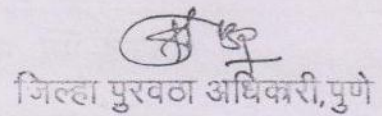 जिल्हा पुरवठा अधिकारी, पुणे